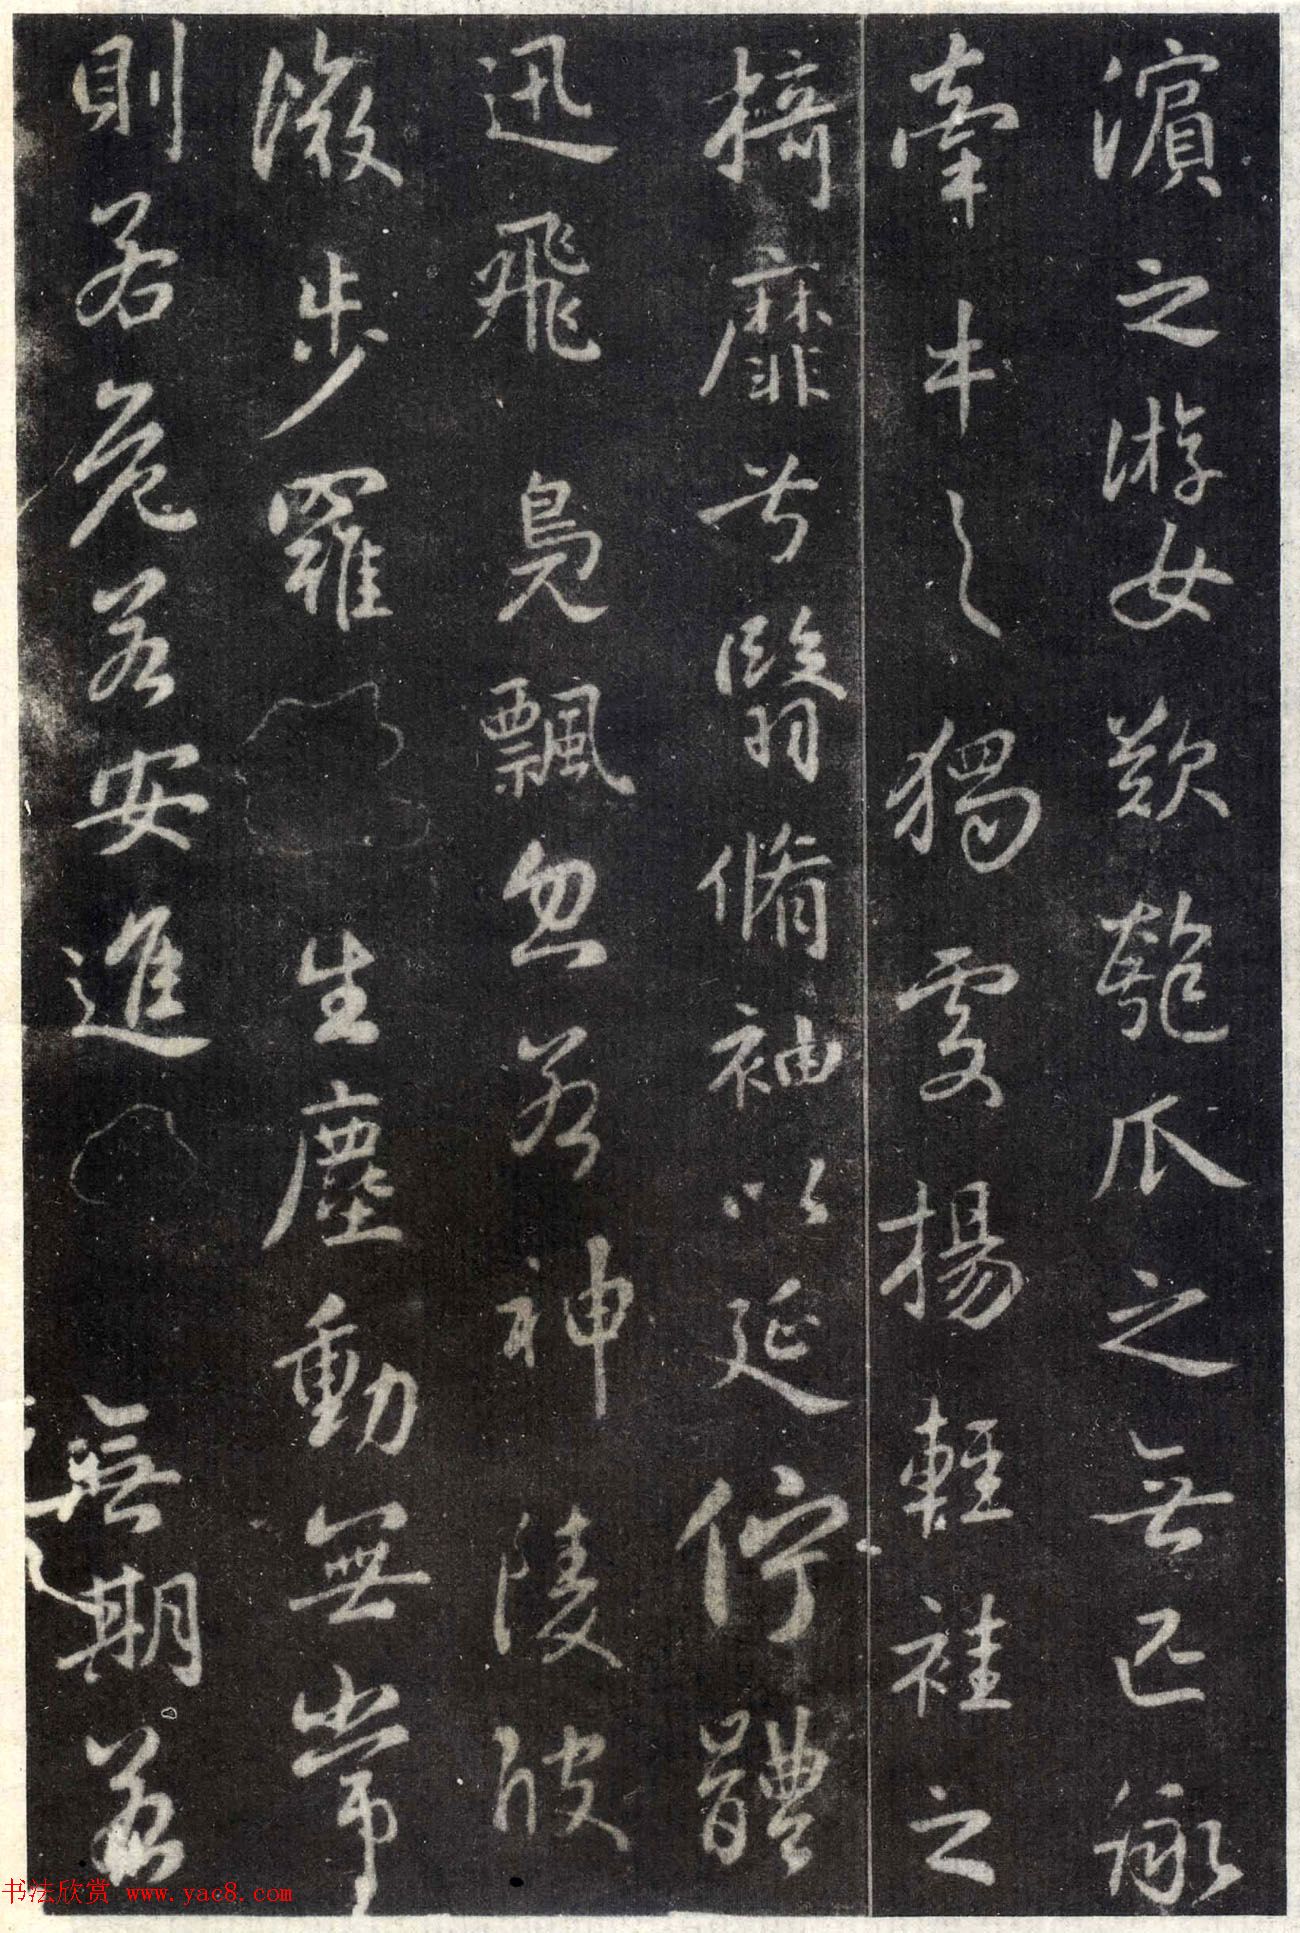 濵之游女歎匏瓜之無匹詠
牽牛之獨處揚輕袿之
猗靡兮翳脩袖以延佇體
迅飛鳧飄忽若神陵波
微步羅生塵動無常
則若危若安進無期若
书法欣赏 www.yac8.com